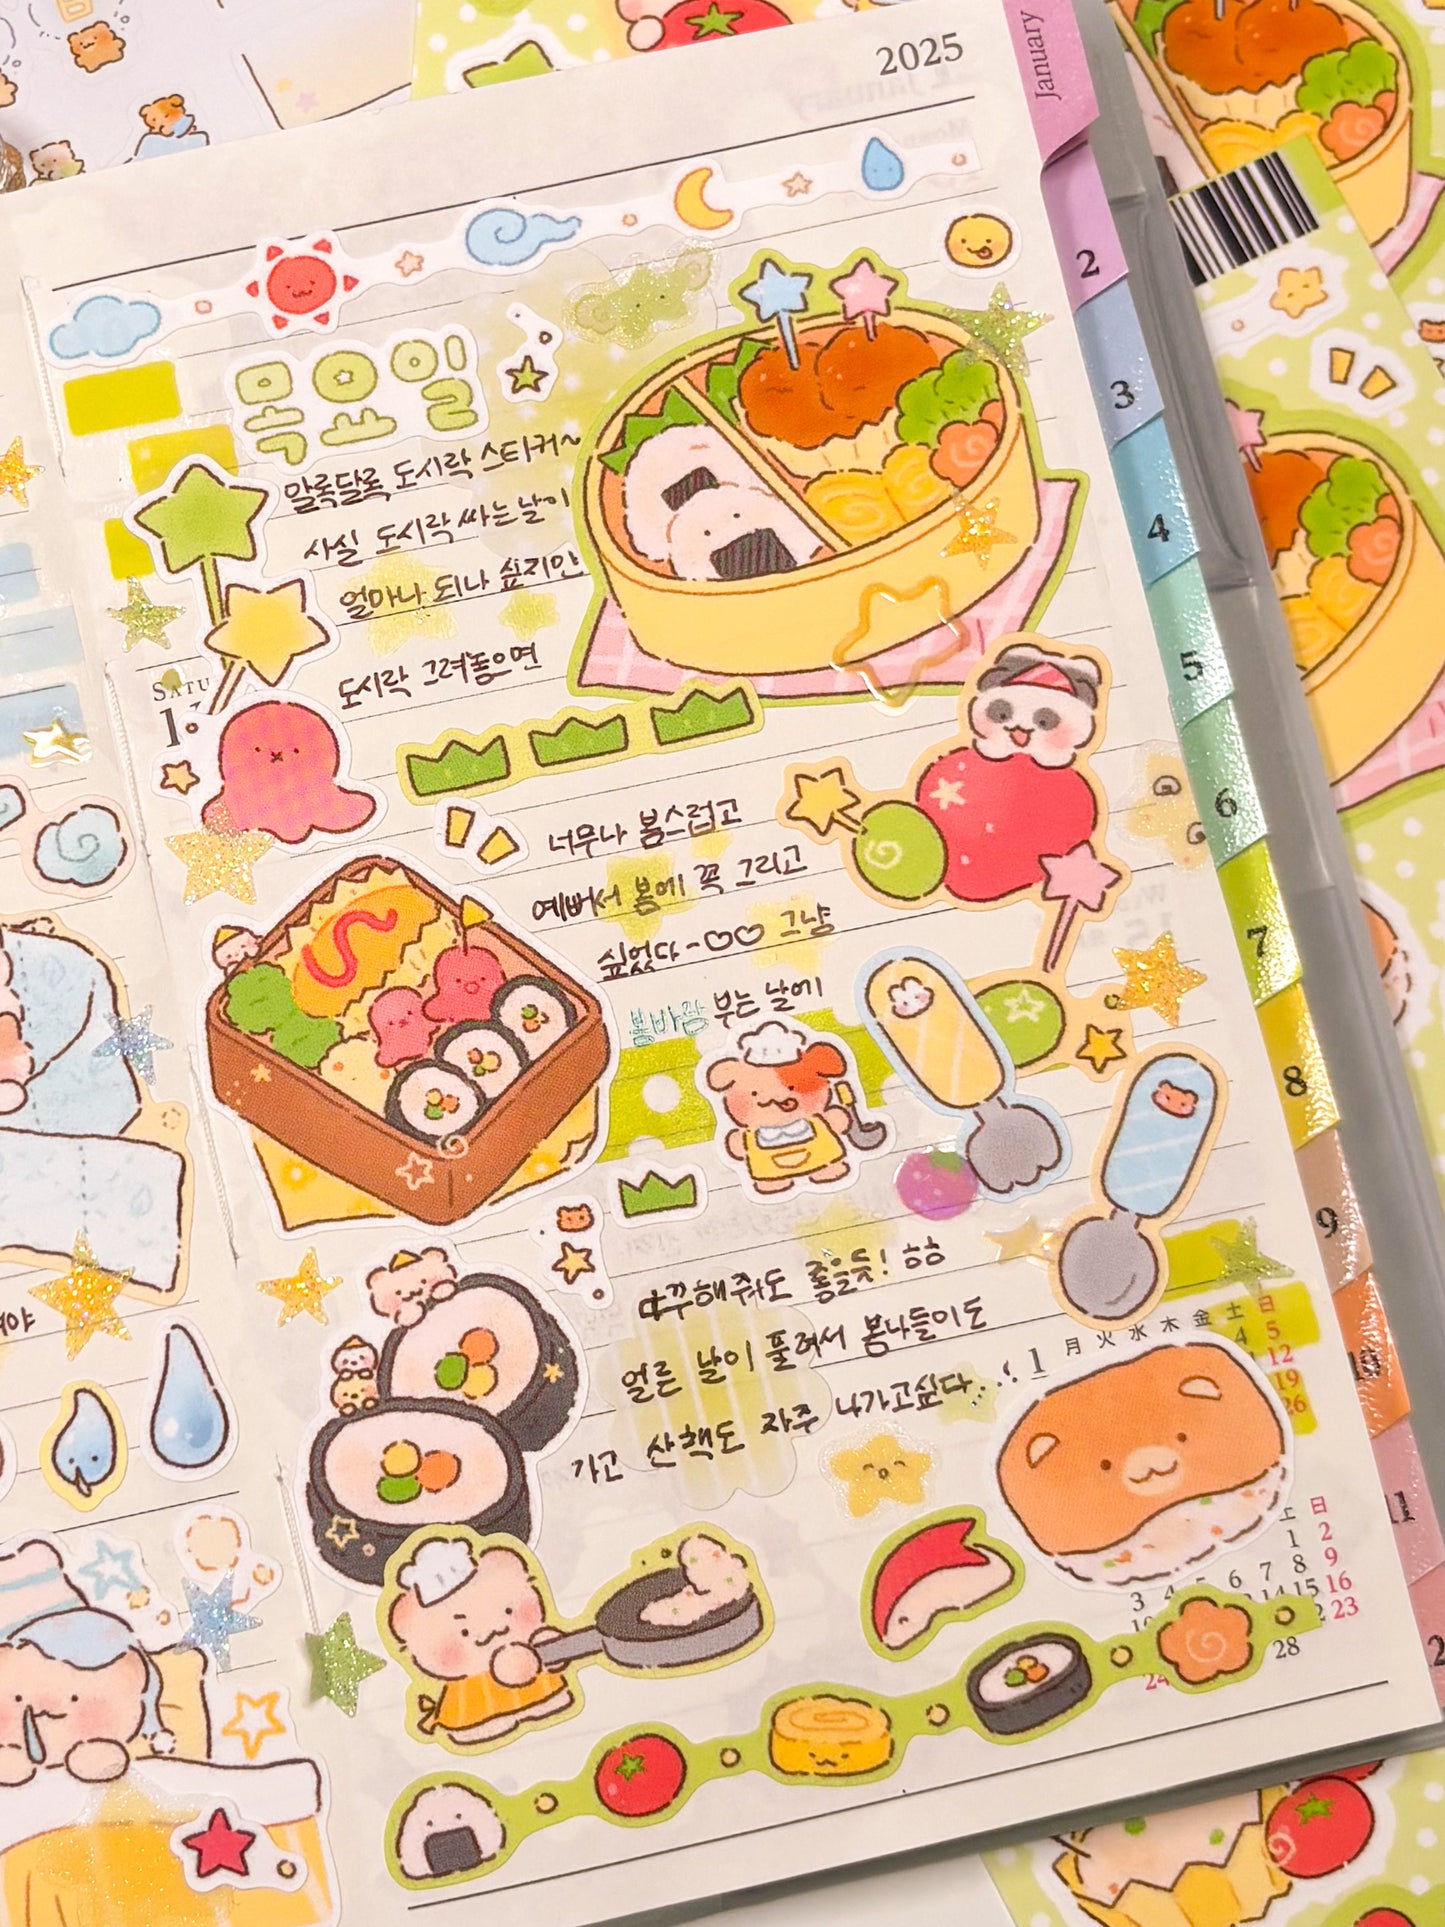 2025
January
목요일
알록달록 도시락 스티커~
사실 도시락 싸는 날이
얼마나 되나 싶지만
도시락 그려놓으면
SATU
너무나 봄스럽고
예뻐서 봄에 꼭 그리고
싶었다~♡♡ 그냥
봄바람 부는 날에
다꾸해줘도 좋을듯! ㅎㅎ
얼른 날이 풀려서 봄나들이도
가고 산책도 자주 나가고싶다..!
2
3
4
5
6
7
8
9
10
11
1
月 火 水 木 金 土 日
4 5
12
19
26
土 日
1 2
6 7 8 9
14 15 16
23
24
28